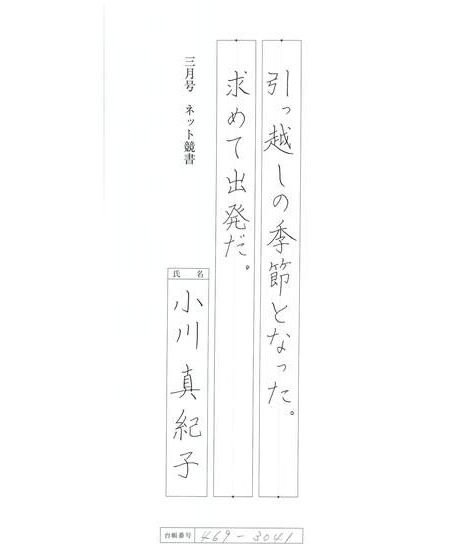 引っ越しの季節となった。
求めて出発だ。
三月号 ネット競書
氏名
小川真紀子
台帳番号 469-3041